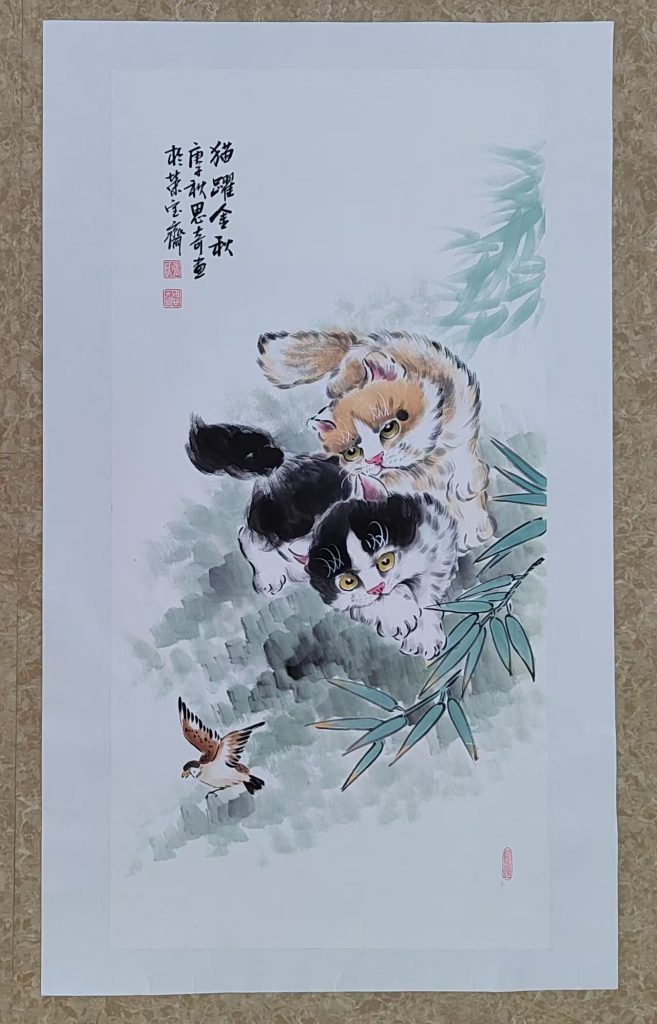 猫躍金秋
庚子秋思奇画
於荣宝齋